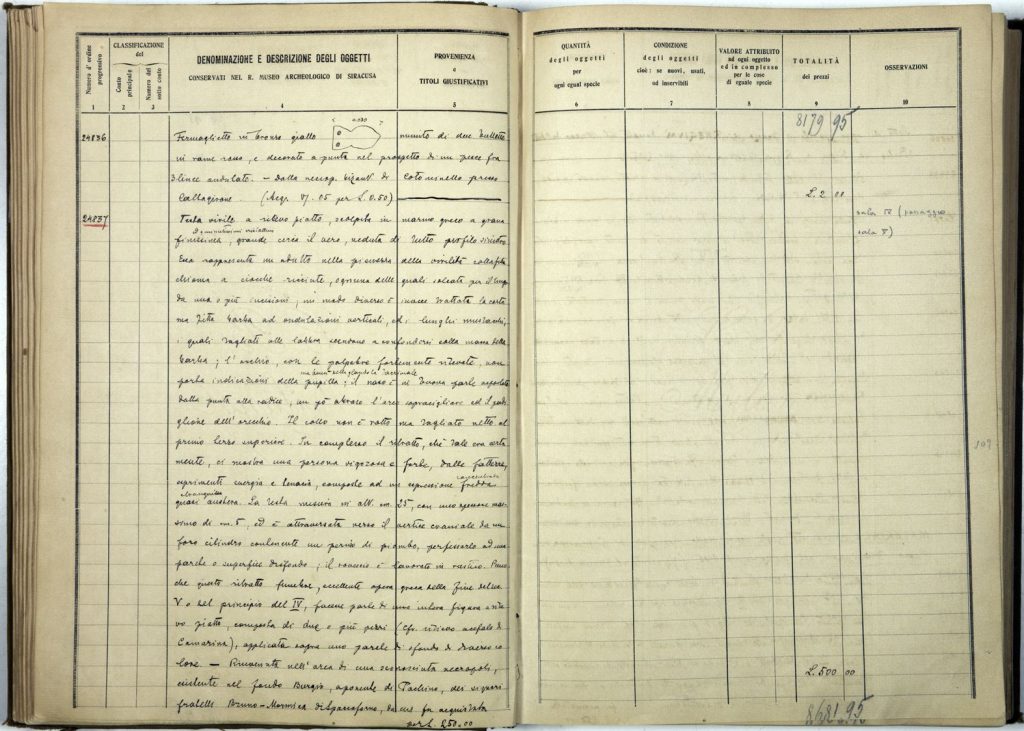 Numero d'ordine progressivo
CLASSIFICAZIONE
del
Conto principale
Numero del sotto conto
DENOMINAZIONE E DESCRIZIONE DEGLI OGGETTI
CONSERVATI NEL R. MUSEO ARCHEOLOGICO DI SIRACUSA
PROVENIENZA
e
TITOLI GIUSTIFICATIVI
1 2 3 4 5
24836 Fermaglietto in bronzo giallo munito di due bullette
in rame rosso, e decorato a punta nel prospetto di un pesce fra
3 linee ondulate. — Dalla necrop. bizant. di Cotominello presso
Caltagirone. (Acqr. VI. 05 per L. 0.50)
24837 Testa virile a rilievo piatto, scolpita in marmo greco a grana
finissima, grande circa il vero, veduta di tutto profilo sinistro
Essa rappresenta un adulto nella pienezza della virilità colla fitta
chioma a ciocche ricciute, ognuna delle quali solcata per il lungo
da una o più incisioni; in modo diverso è invece trattata la corta
ma fitta barba ad ondulazioni verticali, ed i lunghi mustacchi,
i quali tagliati alle labbra scendono a confondersi colla massa della
barba; l'occhio, con le palpebre fortemente rilevate, non
ma bensì della glandola lacrimale
porta indicazioni della pupilla; il naso è in buona parte asportato
dalla punta alla radice, un pò abraso l'arco sopraccigliare ed il padi-
glione dell'orecchio. Il collo non è rotto ma tagliato netto al
primo terzo superiore. In complesso il ritratto, chè tale era certa-
mente, ci mostra una persona vigorosa e forte, dalle fattezze
esprimenti energia e tenacia, composte ad un espressione fredda
concentrata
quasi austera. La testa misura in alt. cm. 25, con uno spessore mas-
simo di cm. 5, ed è attraversata verso il vertice craniale da un
foro cilindro contenente un pernio di piombo, per fissarlo ad una
parete o superficie di sfondo; il rovescio è lavorato in rustico. Pare
che questo ritratto funebre, eccellente opera greca della fine del sec.
V o del principio del IV, facesse parte di una intera figura a rilie-
vo piatto, composta di due o più pezzi (Cfr. rilievo acefalo di
Camarina), applicata sopra una parete di sfondo di diverso co-
lore. — Rinvenuta nell'area di una sconosciuta necropoli,
esistente nel fondo Burgio, a ponente di Pachino, dei signori
fratelli Bruno - Modica di Spaccaforno, da cui fu acquistata
per L. 250.00
QUANTITÀ
degli oggetti
per
ogni egual specie
CONDIZIONE
degli oggetti
cioè: se nuovi, usati,
od inservibili
VALORE ATTRIBUITO
ad ogni oggetto
ed in complesso
per le cose
di eguale specie
TOTALITÀ
dei prezzi
OSSERVAZIONI
6 7 8 9 10
8179 95
L. 2 00
sala V)
L. 500 00
8681 95
109